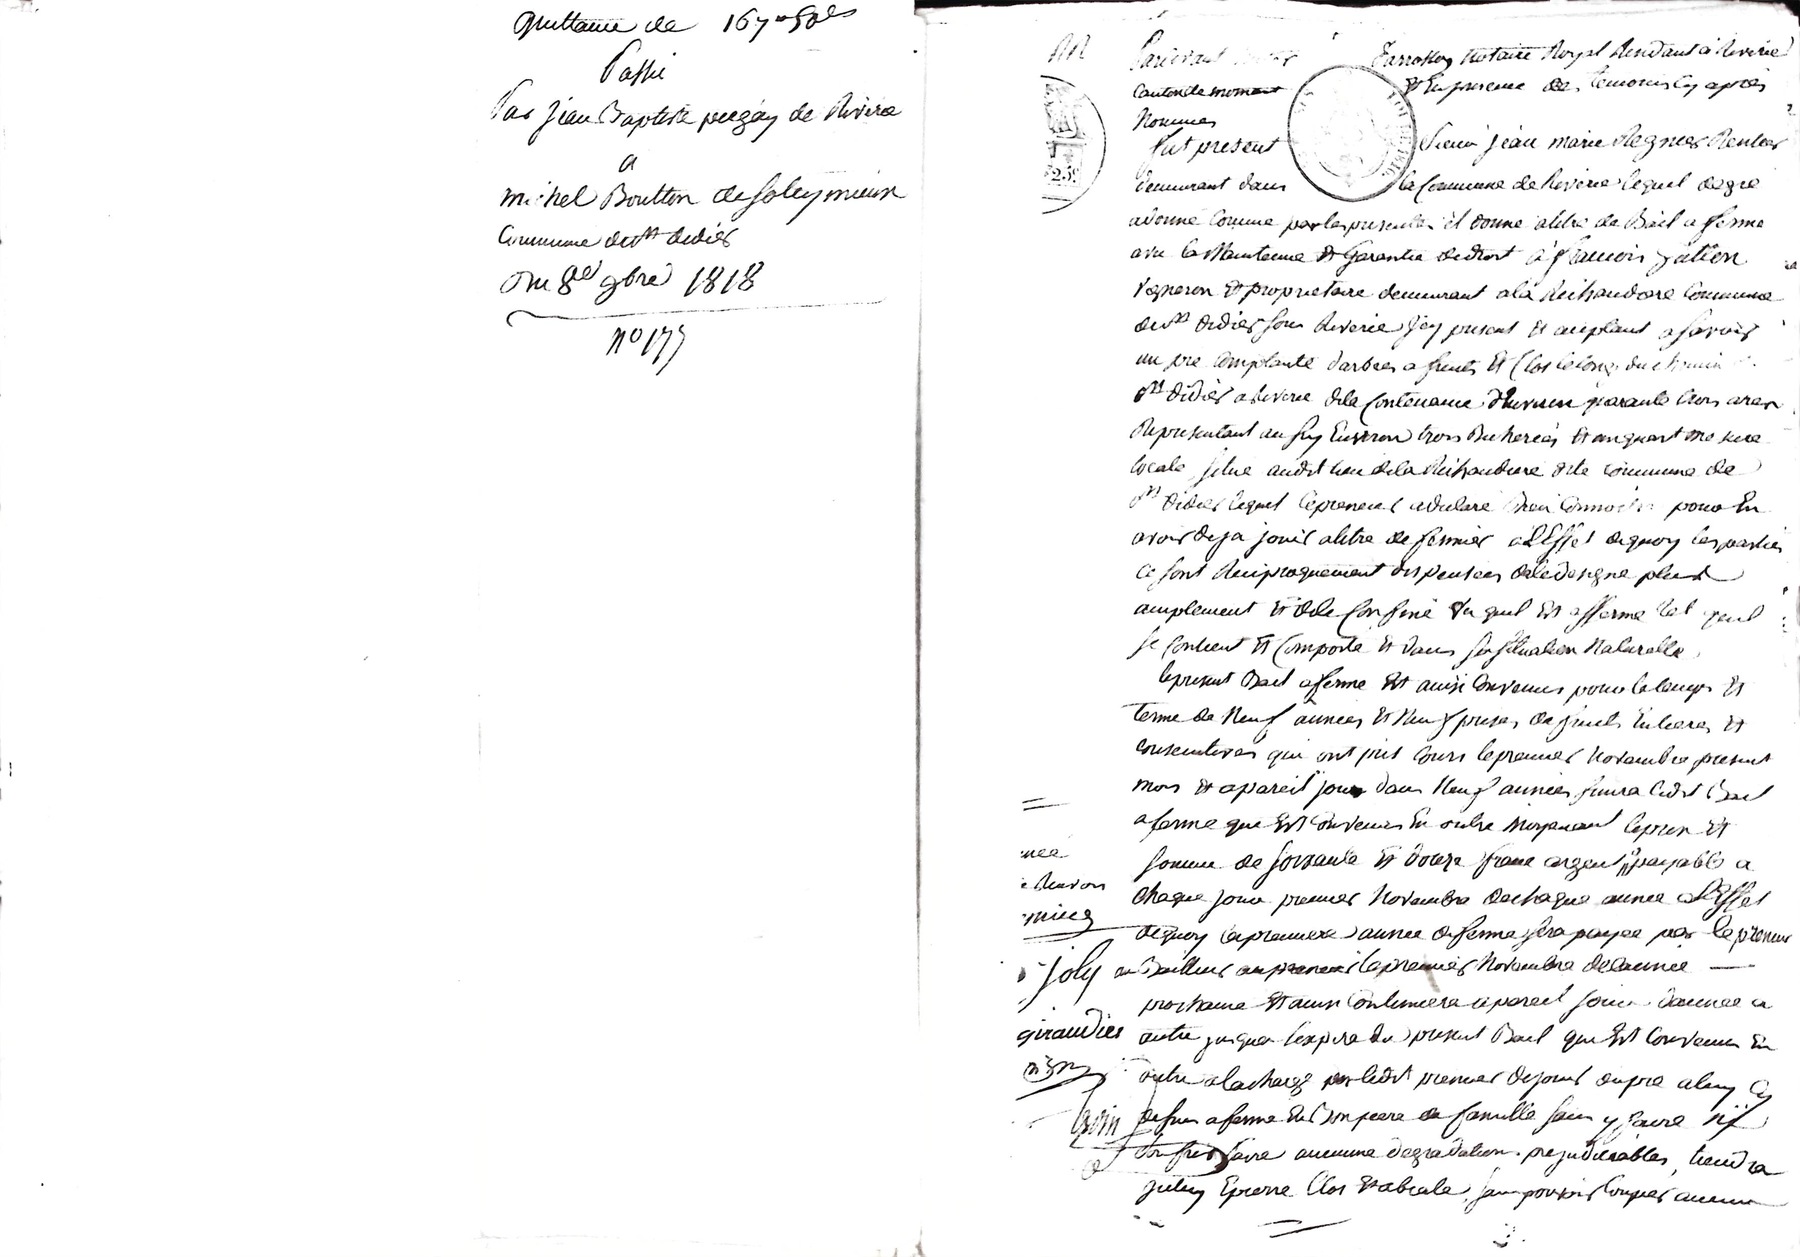 quittance de 167# 50s
Passé
Par jean Baptiste pugzay de Riverie
a
michel Boutton de soleymieux
commune de st didier
Du 8e 9bre 1818
no 177
Pardevant Notaire Royal Residant a Riverie
Et En presence des temoins cy apres
Nommes
fut present Sieur jean marie Regnier Rentier
demeurant dans la Commune de Riverie lequel de gre
a donne comme par les presentes il donne a titre de Bail a ferme
avec la Maintenue Et Garantie de droit a francois jullien
Vigneron Et proprietaire demeurant a la Richaudiere Commune
de st didier sous Riverie Icy present Et acceptant a savoir
un pre complanté darbres a fruits Et Clos le long du chemin
st didier a Riverie de la Contenance d'Environ quarante trois ares
Representant au fay Environ trois Bicherées Et un quart mesure
locale situe audit lieu de la Richaudiere dite commune de
st didier lequel le preneur a declaré Bien Connoitre pour En
avoir deja jouis a titre de fermier a L'Effet de quoy les parties
ce sont Reciproquement dispensées de le designe plus
amplement Et de le Confiné tu quil Est afferme tel quil
se Contient Et Comporte Et dans sa situation Naturelle
le present Bail a ferme Est ainsi Convenus pour le temps Et
terme de Neuf années Et Neuf prises de fruits Entieres Et
consecutives qui ont pris Cours le premier Novembre present
mois Et a pareil jour dans Neuf années finira ledit Bail
a ferme que Est Convenus En outre moyenant le prix Et
somme de soixante Et douze franc argent payable a
chaque jour premier Novembre de chaque annee a L'Effet
de quoy la premiere annee de ferme sera payee par le preneur
au Bailleur le premier Novembre de l'annee
prochaine Et ainsi Continuera a pareil jour d'annee a
autre jusqua l'expire du present Bail que Est Convenus En
outre a la charge par ledit preneur de jouir du pre a luy Cy
dessus a ferme En Bon pere de famille sans y faire ny
souffrir faire aucunne degradation prejudiciables, tiendra
Clos Et sans pouvoir Couper aucun
née
Environ
joly
giraudier